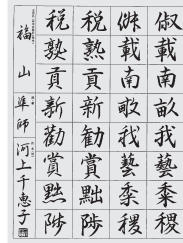 俶載南畝我藝黍稷
俶載南畝我藝黍稷
税熟貢新勸賞黜陟
税熟貢新勸賞黜陟
福山 準師 河上千恵子